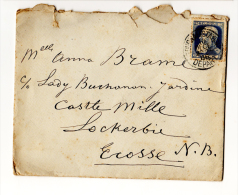 Melle Anna Brame
c/o Lady Buchanan-Jardine
Castle Mille
Lockerbie
Ecosse N.B.